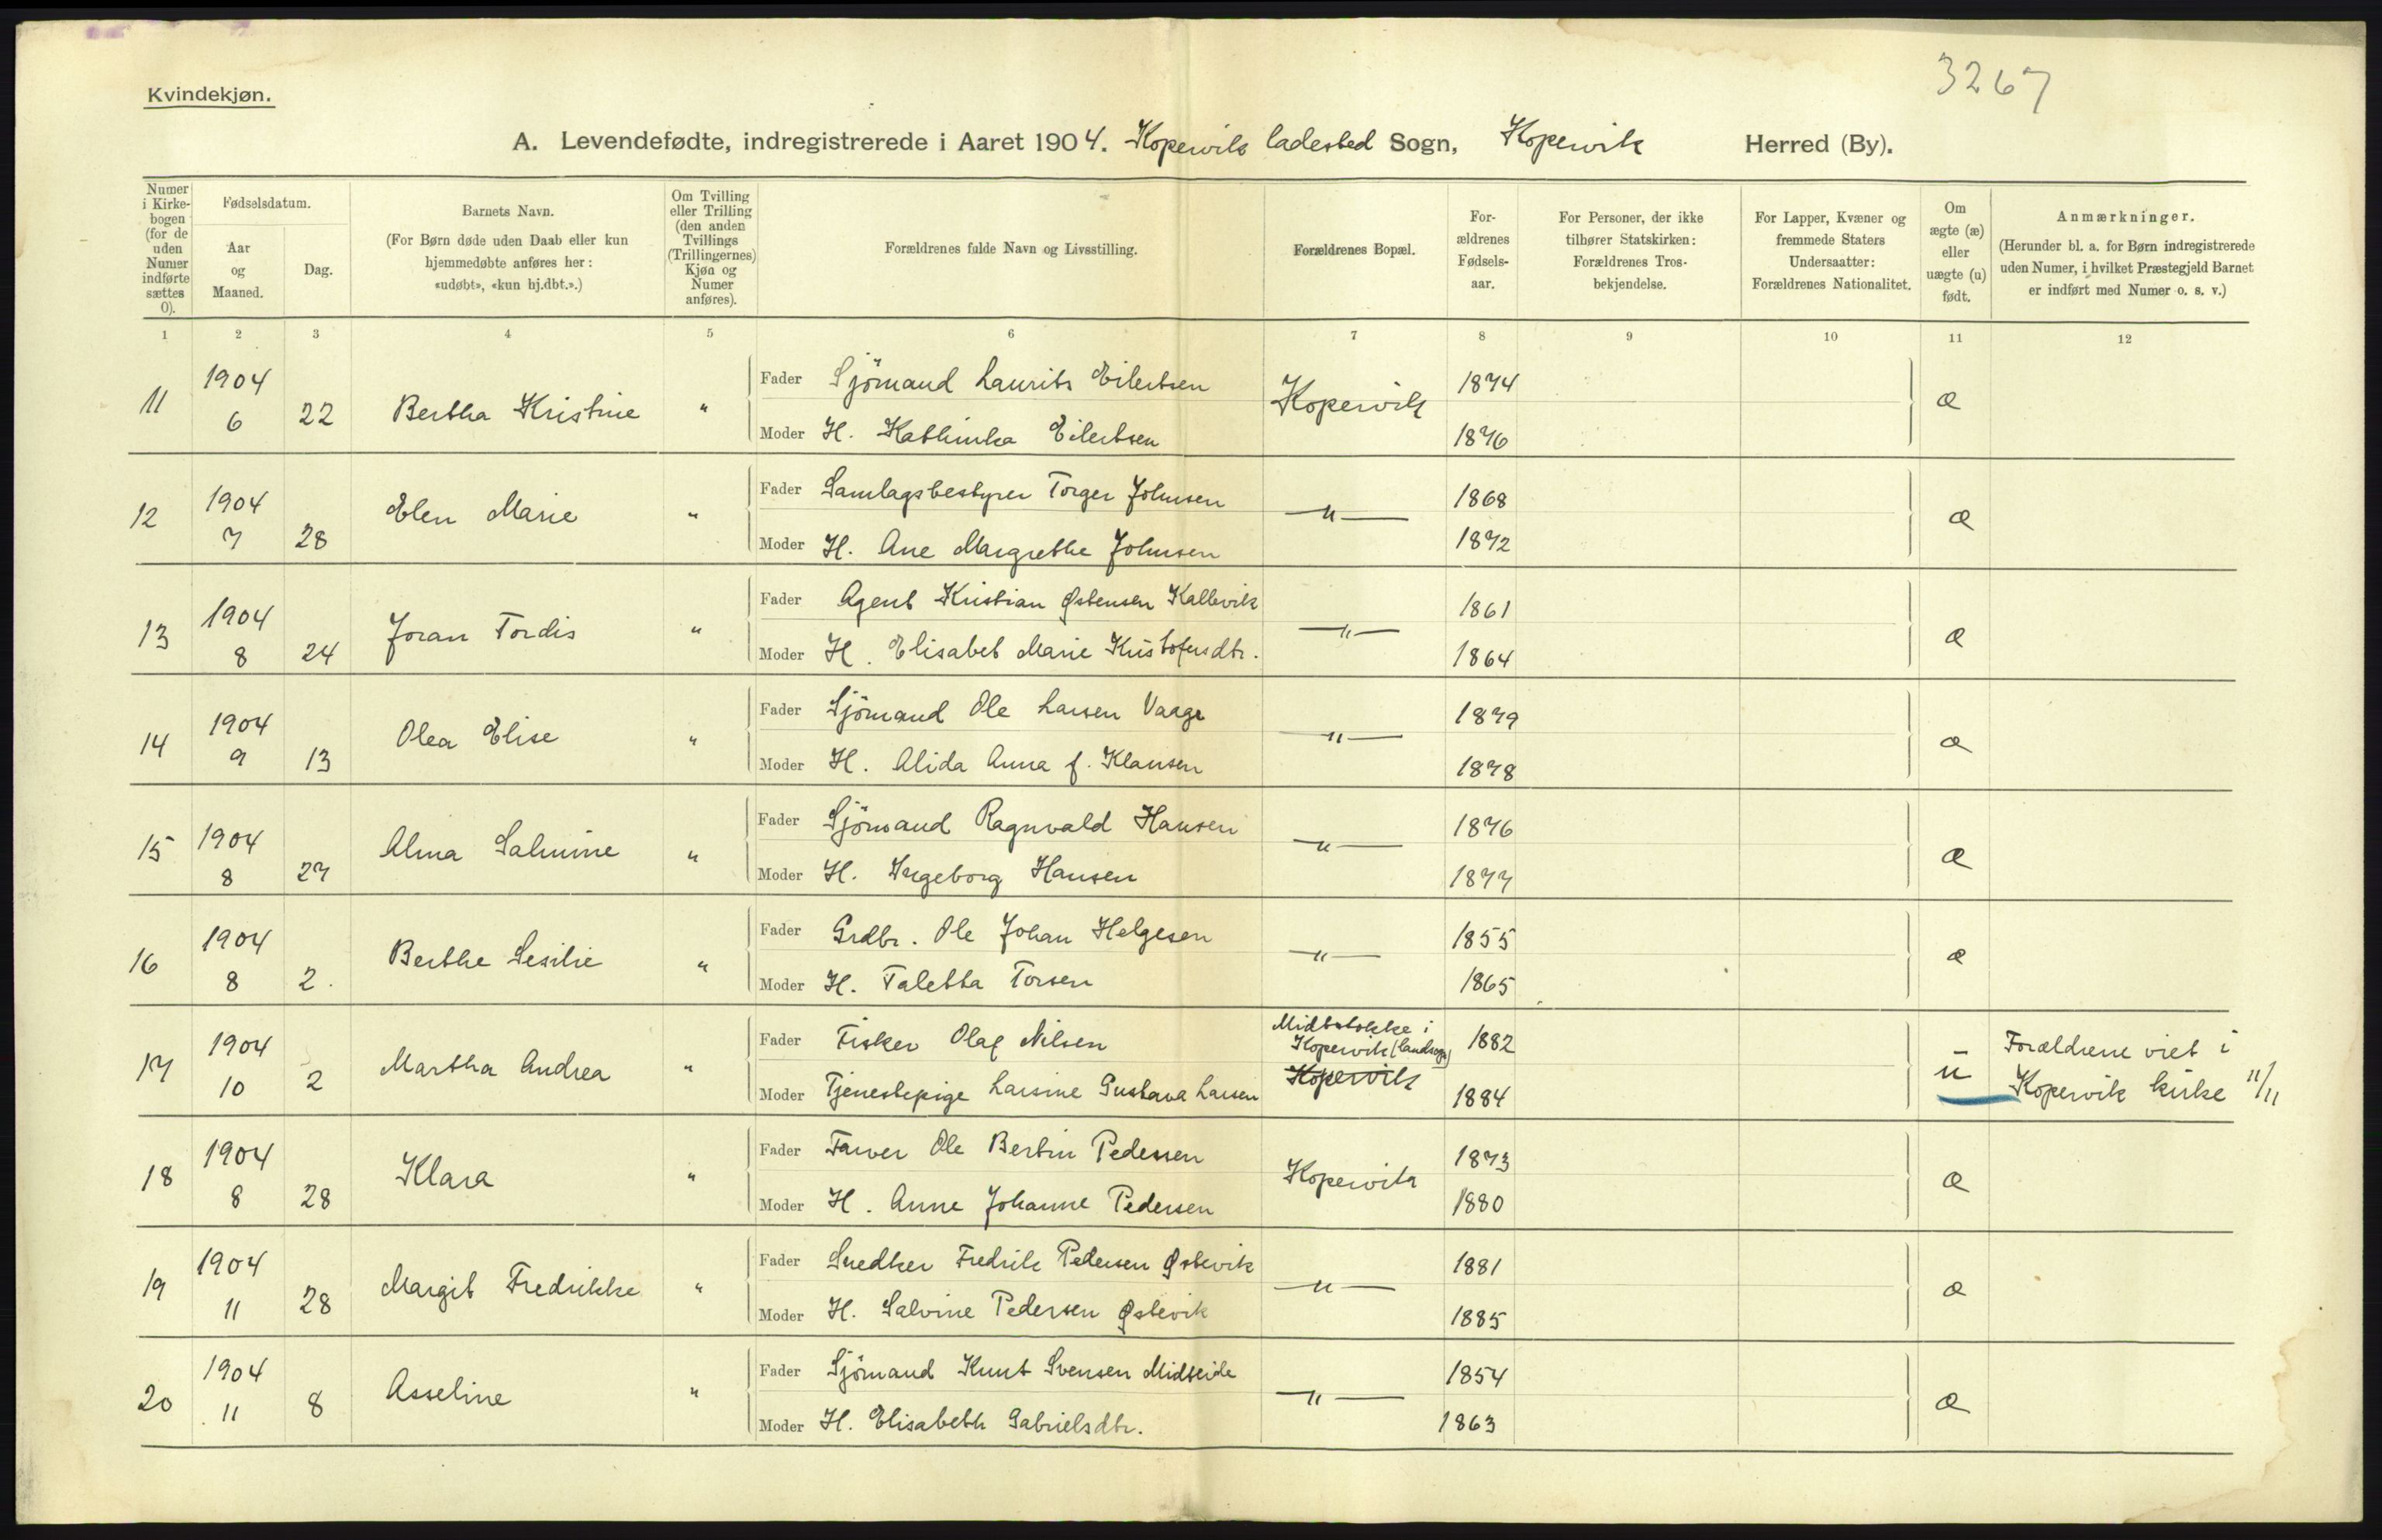 3267
Kvindekjøn.
A. Levendefødte, indregistrerede i Aaret 1904. Kopervik ladested Sogn, Kopervik Herred (By).
Numer i Kirkebogen (for de uden Numer indførte sættes 0).
Fødselsdatum.
Aar og Maaned.
Dag.
Barnets Navn.
(For Børn døde uden Daab eller kun hjemmedøbte anføres her: «udøbt», «kun hj.dbt.».)
Om Tvilling eller Trilling (den anden Tvillings (Trillingernes) Kjøn og Numer anføres).
Forældrenes fulde Navn og Livsstilling.
Forældrenes Bopæl.
Forældrenes Fødselsaar.
For Personer, der ikke tilhører Statskirken: Forældrenes Trosbekjendelse.
For Lapper, Kvæner og fremmede Staters Undersaatter: Forældrenes Nationalitet.
Om ægte (æ) eller uægte (u) født.
Anmærkninger.
(Herunder bl. a. for Børn indregistrerede uden Numer, i hvilket Præstegjeld Barnet er indført med Numer o. s. v.)
1 2 3 4 5 6 7 8 9 10 11 12
11 1904 6 22 Bertha Kristine " Fader Sjömand Laurits Eilertsen Kopervik 1874 æ
Moder H. Kathinka Eilertsen 1876
12 1904 7 28 Elen Marie " Fader Samlagsbestyrer Torger Johnsen —"— 1868 æ
Moder H. Ane Margrethe Johnsen 1872
13 1904 8 24 Joran Tordis " Fader Agent Kristian Østensen Kallevik —"— 1861 æ
Moder H. Elisabet Marie Kristofersdtr. 1864
14 1904 9 13 Olea Elise " Fader Sjömand Ole Larsen Vaage —"— 1879 æ
Moder H. Alida Anna f. Klausen 1878
15 1904 8 27 Alma Salmine " Fader Sjömand Ragnvald Hansen —"— 1876 æ
Moder H. Ingeborg Hansen 1877
16 1904 8 2. Berthe Sesilie " Fader Grdbr. Ole Johan Helgesen —"— 1855 æ
Moder H. Taletta Torsen 1865
17 1904 10 2 Martha Andrea " Fader Fisker Olaf Nilsen Midtstokke i Kopervik (landsogn) 1882 u Forældrene viet i
Moder Tjenestepige Larsine Gustava Larsen Kopervik 1884 Kopervik kirke 11/11
18 1904 8 28 Klara " Fader Farver Ole Bertin Pedersen Kopervik 1873 æ
Moder H. Anne Johanne Pedersen 1880
19 1904 11 28 Margit Fredrikke " Fader Snedker Fredrik Pedersen Østevik —"— 1881 æ
Moder H. Salvine Pedersen Østevik 1885
20 1904 11 8 Asseline " Fader Sjömand Knut Svensen Midteide —"— 1854 æ
Moder H. Elisabeth Gabrielsdtr. 1863